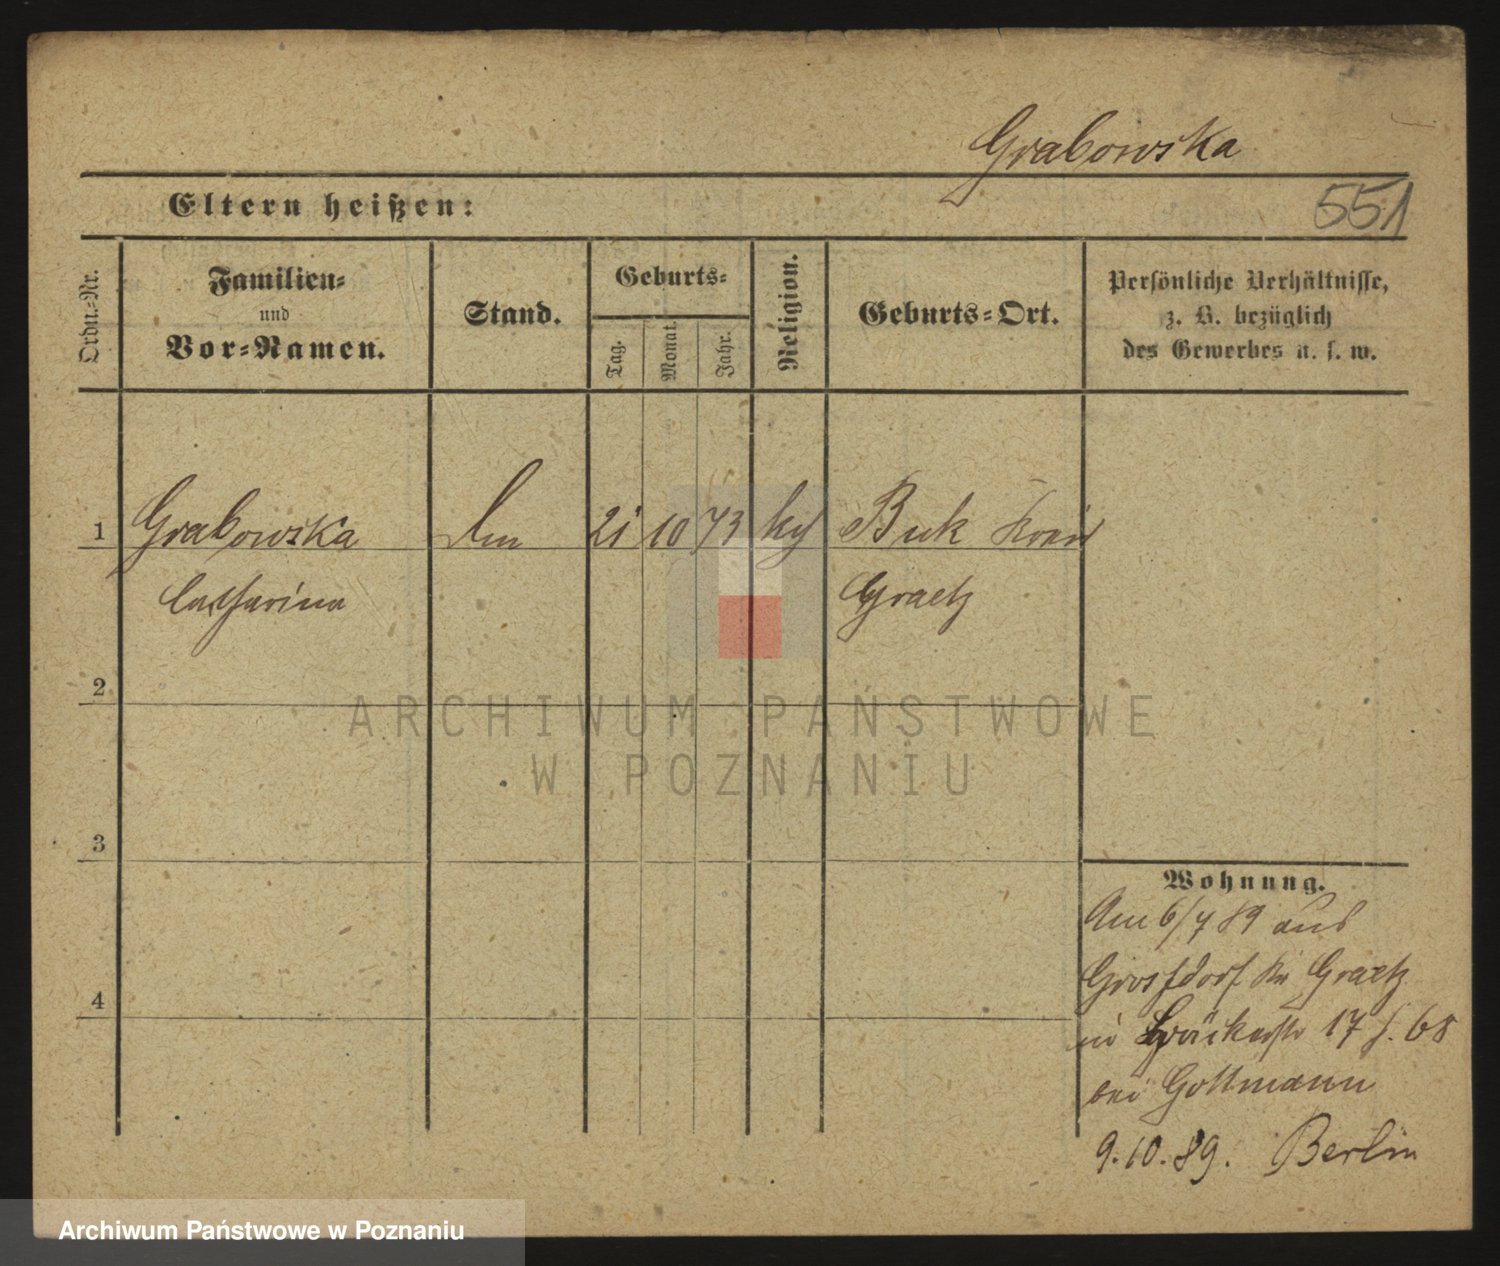 Grabowska
Eltern heißen:
551
Ordn.-Nr.
Familien-
und
Vor-Namen.
Stand.
Geburts-
Tag.
Monat.
Jahr.
Religion.
Geburts-Ort.
Persönliche Verhältnisse,
z. B. bezüglich
des Gewerbes u. s. w.
1 Grabowska 21 10 73 Buk Kreis
Catharina Graetz
2
3
4
Wohnung.
Am 6/7 89 aus
Grossdorf Kr Graetz
in 17 f. 68
bei Gottmann
9.10.89. Berlin
ARCHIWUM PAŃSTWOWE
W POZNANIU
Archiwum Państwowe w Poznaniu